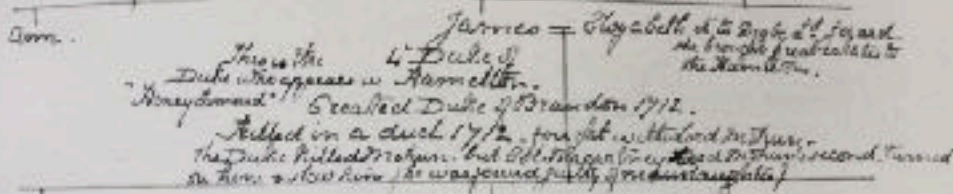 James = Elizabeth d. to Digby Ld. Gerard
she brought great estates to
the Hamiltons.
This is the 4th Duke of
Duke who appears in Hamilton.
"Henry Esmond" Created Duke of Brandon 1712.
Killed in a duel 1712. fought with Lord Mohun.
the Duke killed Mohun. but Lord Mohun's second, turned
on him & slew him (he was found guilty of manslaughter)